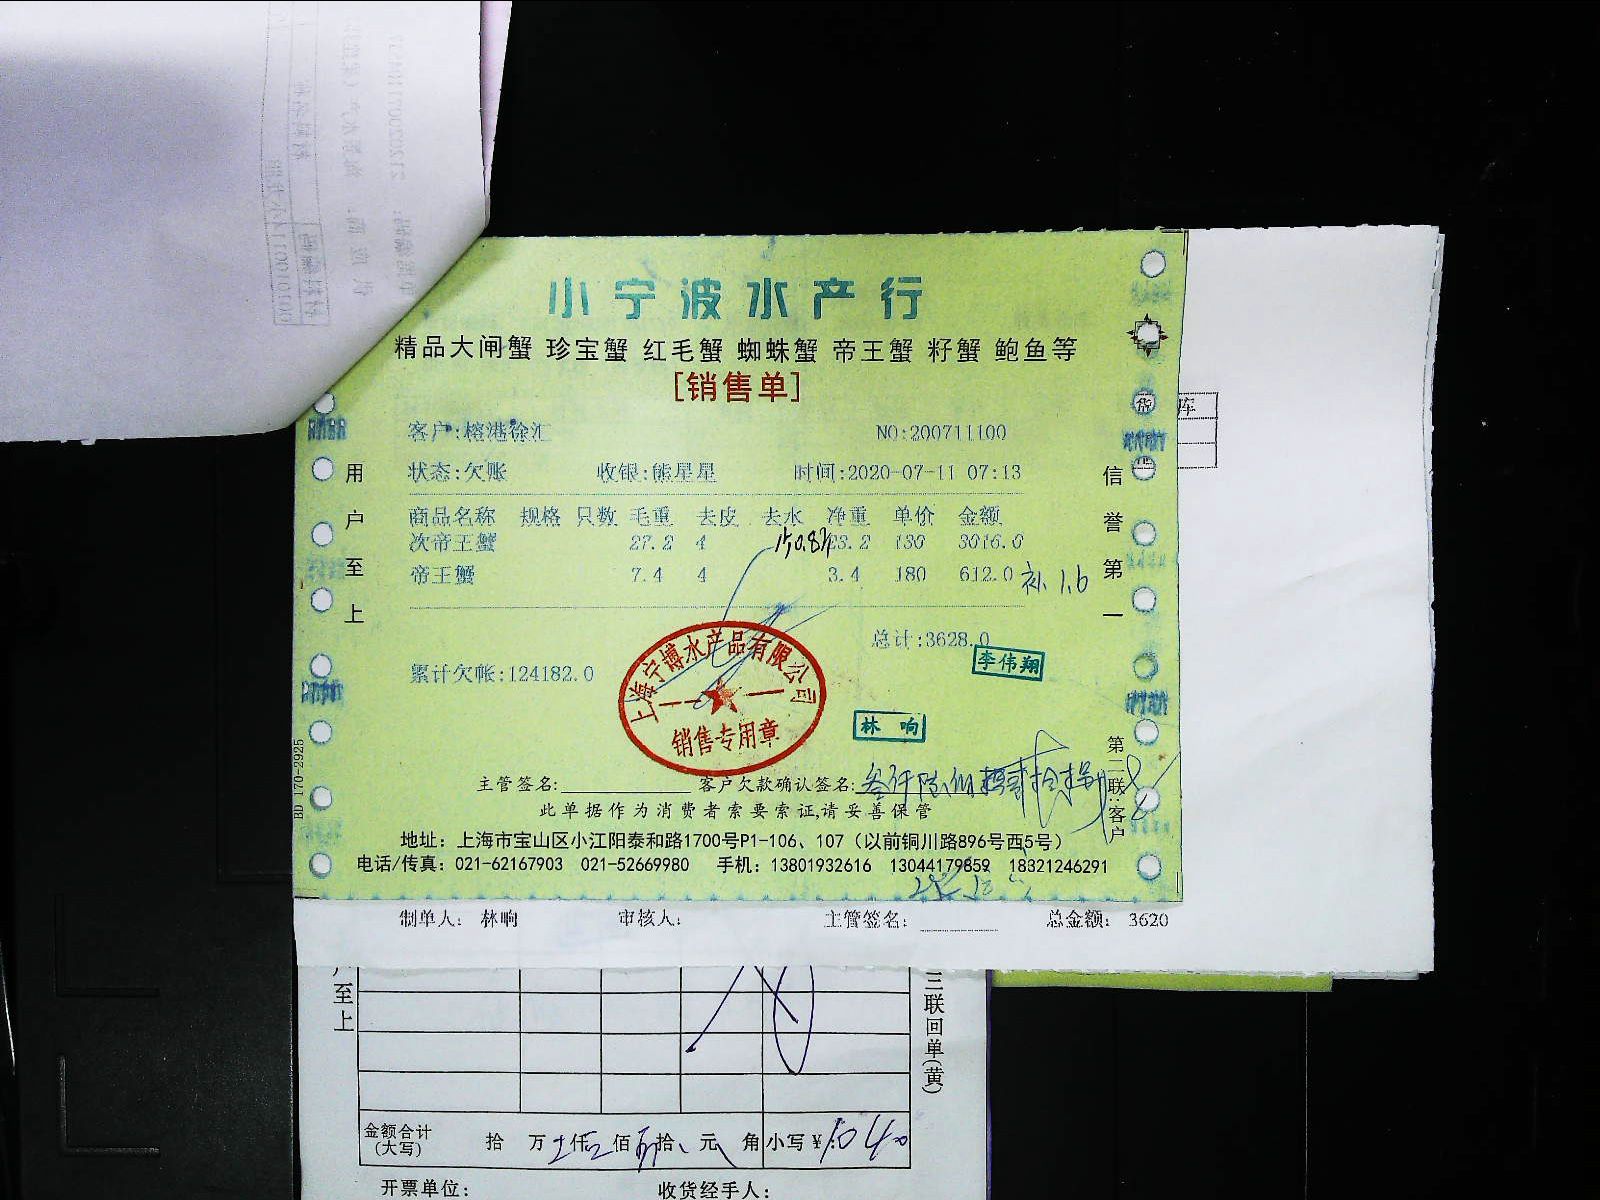 小宁波水产行
精品大闸蟹 珍宝蟹 红毛蟹 蜘蛛蟹 帝王蟹 籽蟹 鲍鱼等
[销售单]
客户:榕港徐汇 NO:200711100
状态:欠账 收银:熊星星 时间:2020-07-11 07:13
商品名称 规格 只数 毛重 去皮 去水 净重 单价 金额
次帝王蟹 27.2 4 23.2 130 3016.0
帝王蟹 7.4 4 3.4 180 612.0 补 1.6
总计:3628.0
累计欠帐:124182.0
李伟翔
林响
上海宁博水产品有限公司
销售专用章
主管签名: 客户欠款确认签名:
此单据作为消费者索要索证,请妥善保管
地址：上海市宝山区小江阳泰和路1700号P1-106、107（以前铜川路896号西5号）
电话/传真：021-62167903 021-52669980 手机：13801932616 13044179859 18321246291
用户至上
信誉第一
第二联:客户
BD 170-2925
库
制单人： 林响 审核人： 主管签名： 总金额： 3620
至上
三联回单(黄)
金额合计(大写) 拾 万 仟 佰 拾 元 角 小写¥
开票单位： 收货经手人：